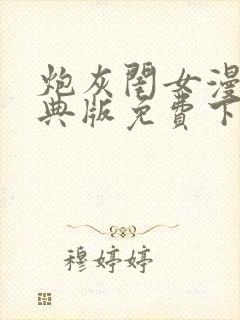 炮灰闺女漫
典版免费下
穆婷婷